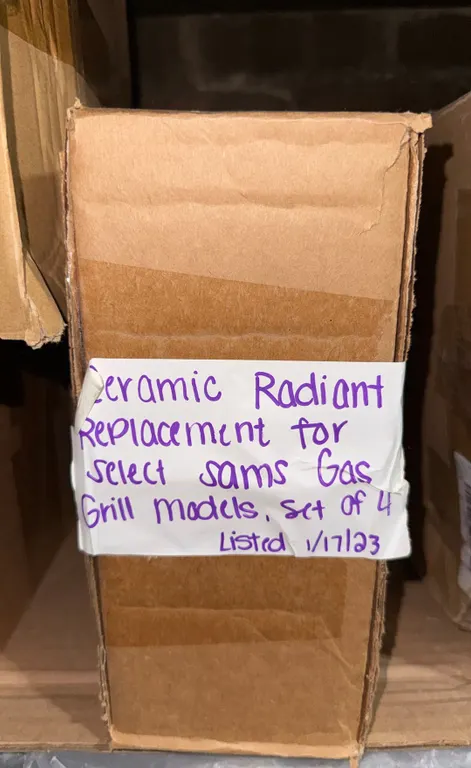 Ceramic Radiant
Replacement for
select sams Gas
Grill models, set of 4
Listed 1/17/23